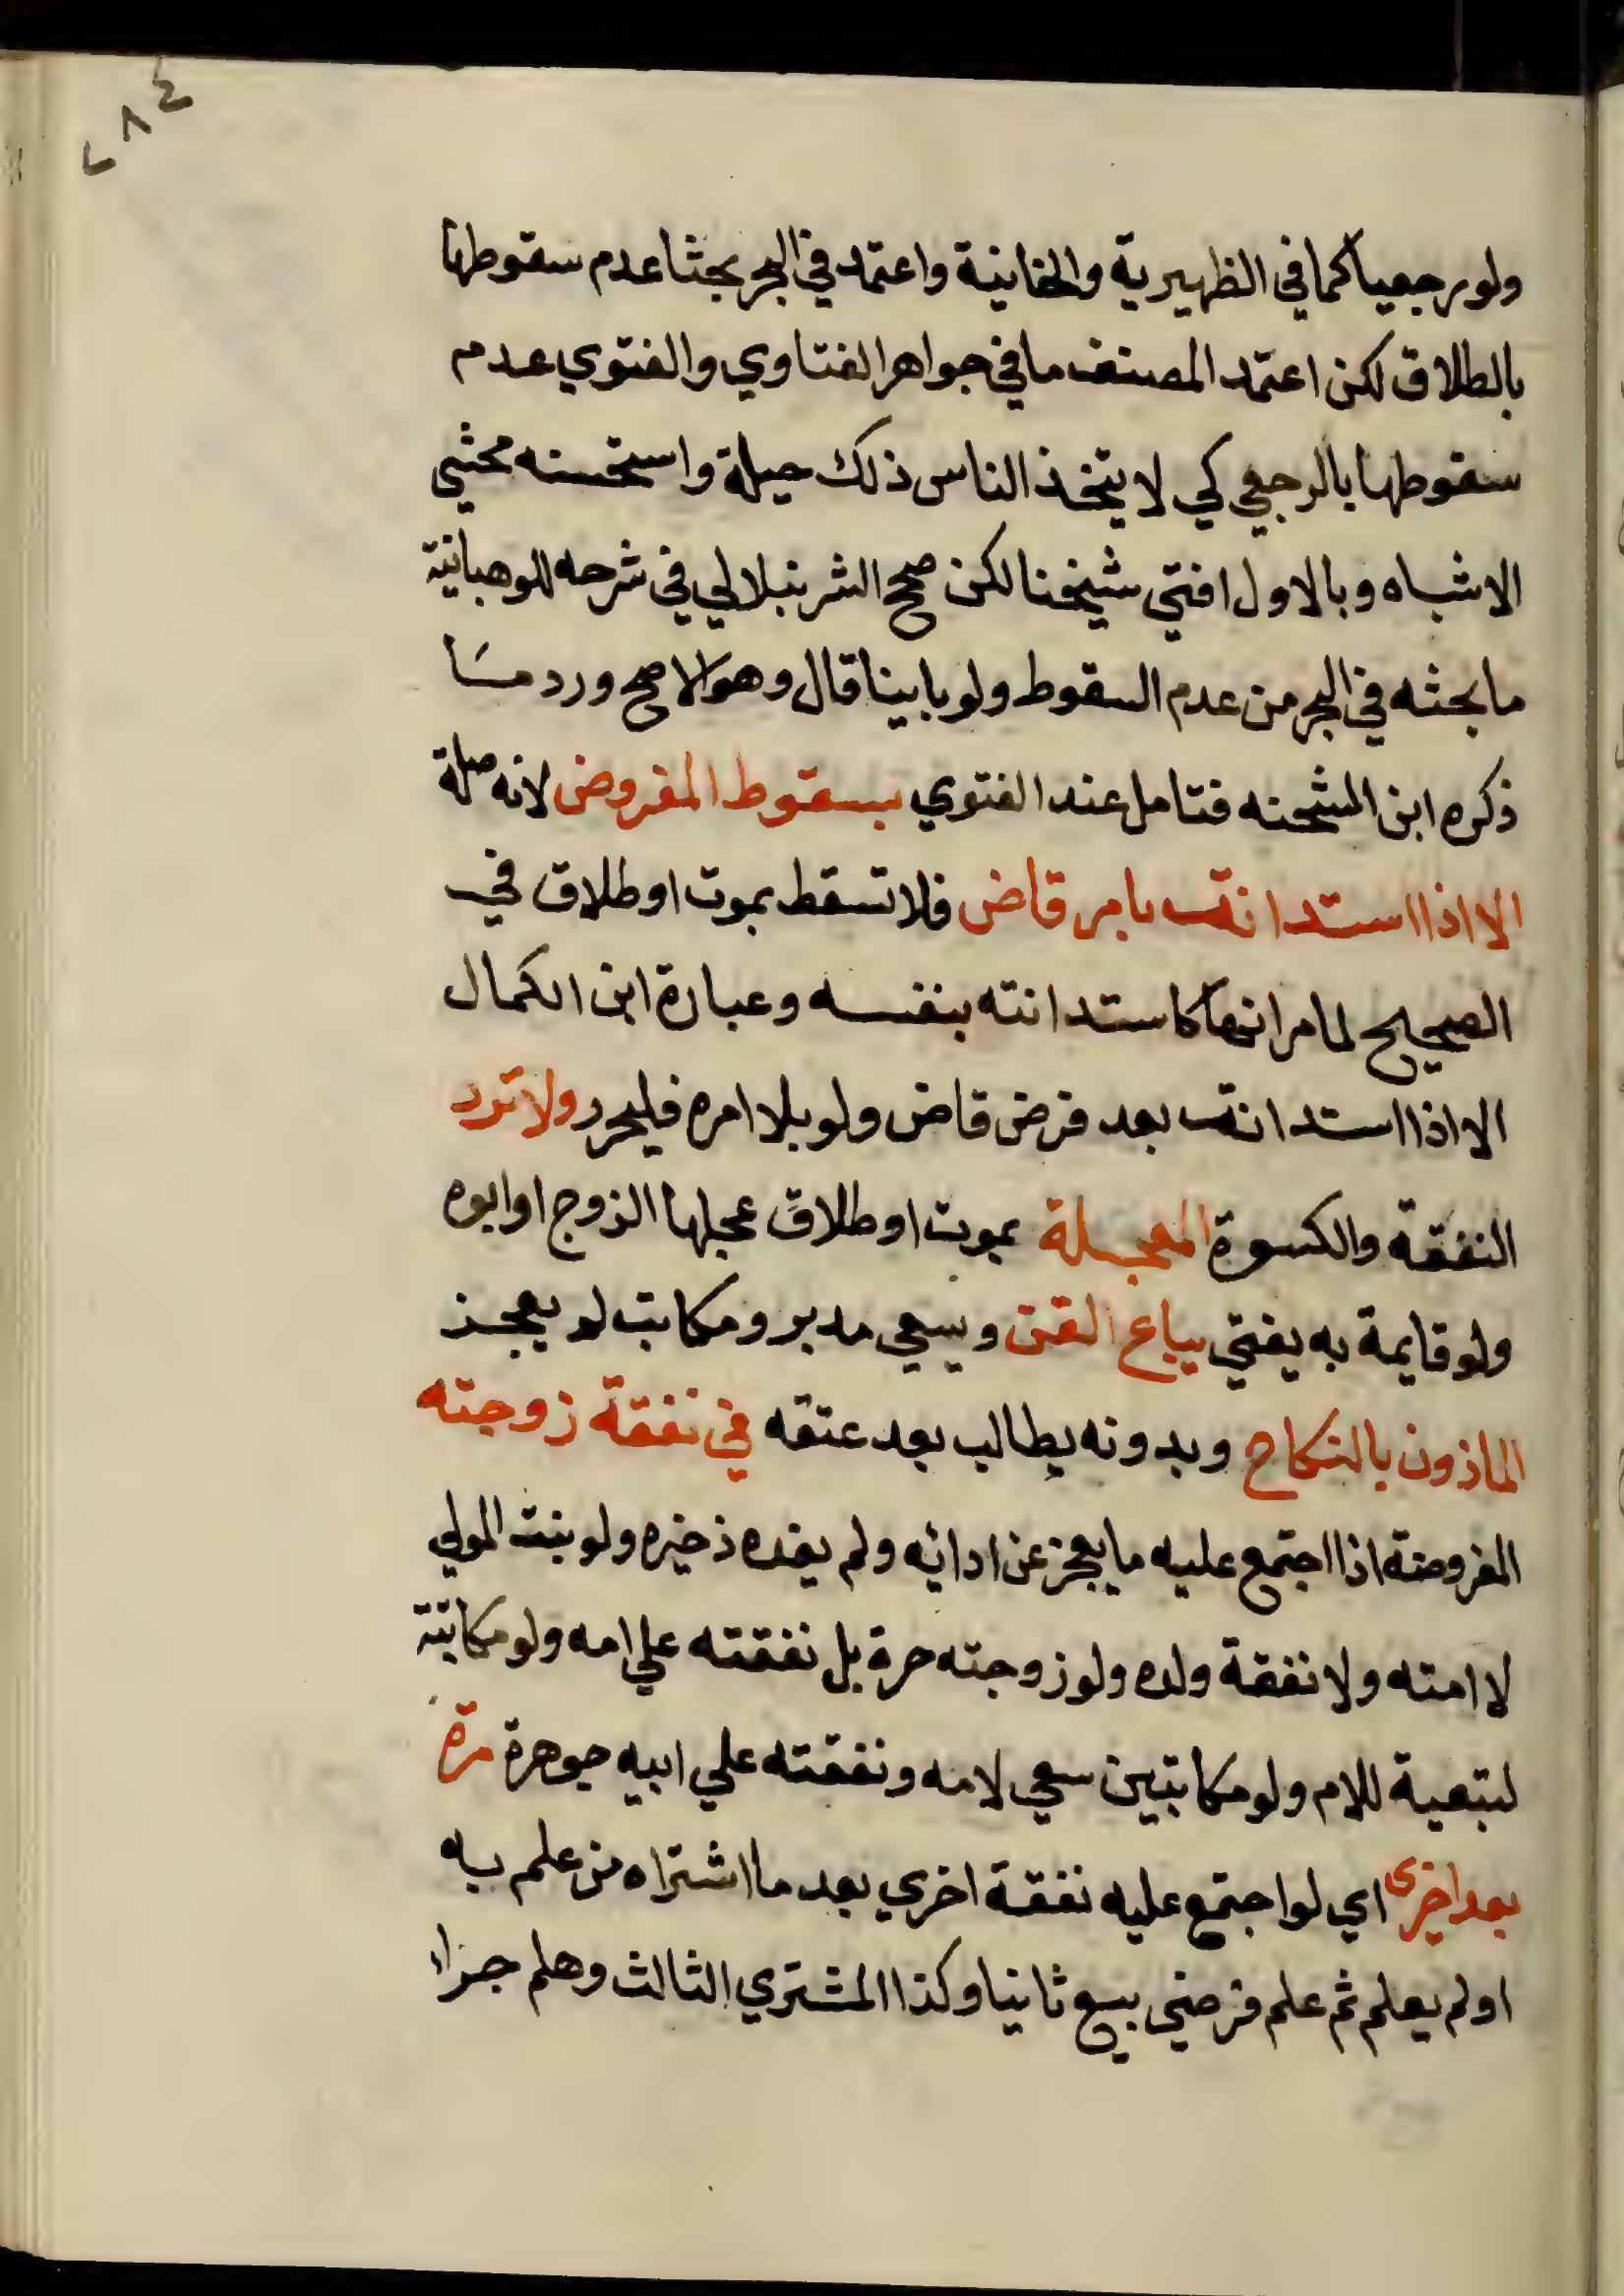 ٢٨٤
ولو رجعيا كما في الظهيرية والخانية واعتمد في البحر بحثا عدم سقوطها
بالطلاق لكن اعتمد المصنف ما في جواهر الفتاوي والفتوي عدم
سقوطها بالرجعي كي لا يتخذ الناس ذلك حيلة واستحسنه محشي
الاشباه وبالاول افتي شيخنا لكن صحح الشرنبلالي في شرحه للوهبانية
ما بحثه في البحر من عدم السقوط ولو باينا قال وهو الاصح ورد ما
ذكره ابن الشحنه فتامل عند الفتوي بسقوط المفروض لانه صلة
الا اذا استدانت بامر قاض فلا تسقط بموت او طلاق في
الصحيح لما مر انها كاستدانته بنفسه وعبارة ابن الكمال
الا اذا استدانت بعد فرض قاض ولو بلا امره فليحرر ولا ترد
النفقة والكسوة المعجلة بموت او طلاق عجلها الزوج او ابوه
ولو قايمة به يفتي يباع القن ويسعي مدبر ومكاتب لم يعجز
الماذون بالنكاح وبدونه يطالب بعد عتقه في نفقة زوجته
المفروضة اذا اجتمع عليه ما يعجز عن ادائه ولم يفده ذخيره ولو بنت المولي
لا امته ولا نفقة ولده ولو زوجته حرة بل نفقته علي امه ولو مكاتبة
لتبعية للام ولو مكاتبين سعي لامه ونفقته علي ابيه جوهرة مرة
بعد اخرى اي لو اجتمع عليه نفقة اخري بعد ما اشتراه من علم به
او لم يعلم ثم علم فرضي بيع ثانيا وكذا المشتري الثالث وهلم جرا